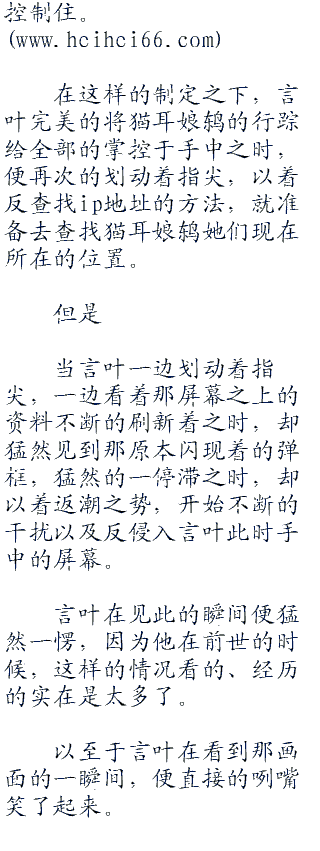 控制住。
(www.hcihci66.com)
在这样的制定之下，言
叶完美的将猫耳娘鸫的行踪
给全部的掌控于手中之时，
便再次的划动着指尖，以着
反查找ip地址的方法，就准
备去查找猫耳娘鸫她们现在
所在的位置。
但是
当言叶一边划动着指
尖，一边看着那屏幕之上的
资料不断的刷新着之时，却
猛然见到那原本闪现着的弹
框，猛然的一停滞之时，却
以着返潮之势，开始不断的
干扰以及反侵入言叶此时手
中的屏幕。
言叶在见此的瞬间便猛
然一愣，因为他在前世的时
候，这样的情况看的、经历
的实在是太多了。
以至于言叶在看到那画
面的一瞬间，便直接的咧嘴
笑了起来。